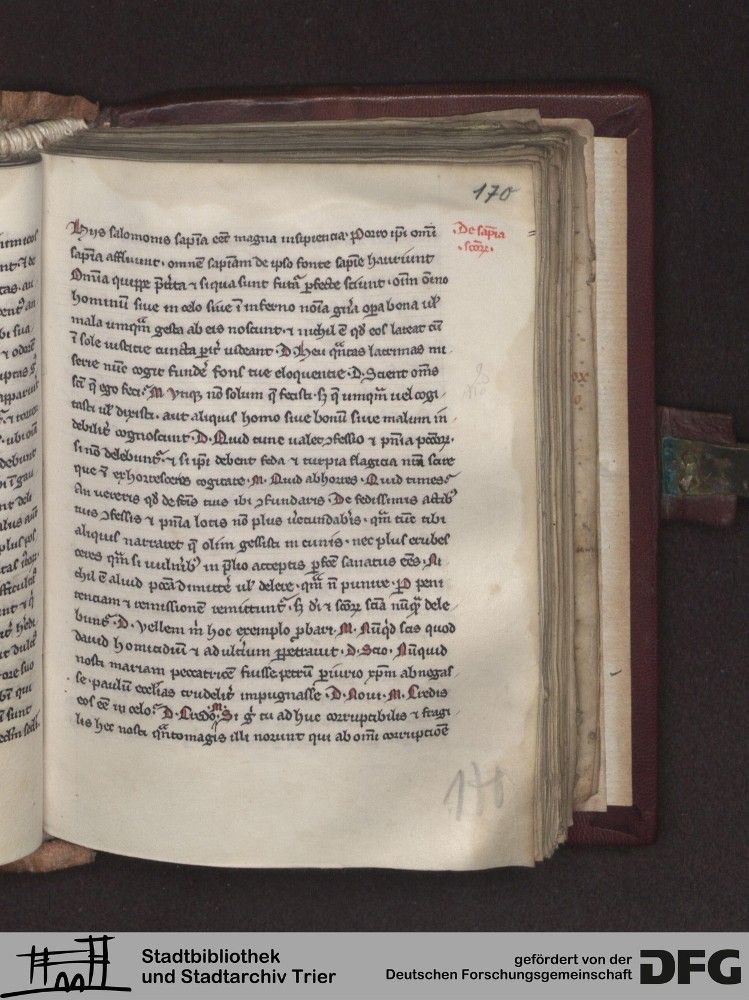 170
Hijs salomonis sapīa eēt magna insipiencia· Porro ip̄i om̄i
De sapīa
scōꝝ·
sapīa affluunt· omnē sapīam de ipso fonte sapīe hauriunt
Om̄ia quippe p̄t̄ita ⁊ siqua sunt futā pfecte sciunt· oīm om̄ino
hominū siue in celo siue ī inferno noīa gn̄a opa bona ul᷑
mala umqm̄ gesta ab eis noscunt· ⁊ nichil ē qd̄ eos lateat cū
ī sole iusticie cuncta pit᷑ uideant· D· Heu qn̄tas lacrimas mi
serie nūc cogit fundē fons tue eloquentie· D· Scient om̄s
scī q̄ ego feci· M· Vtiqꝫ nō solum q̄ fecisti· sꝫ q̄ umqm̄ uel cogi
tasti ul᷑ dixisti· aut aliquis homo siue bonū siue malum in
debilit᷑ cognoscunt· D· Quid tunc ualet ꝯfessio ⁊ pn̄ia pccōꝝ·
si nō delebunt᷑· ⁊ si ip̄i debent feda ⁊ turpia flagicia nr̄a scire
que ⁊ exhorrescen̄s cogitare· M· Quid abhorres· Quid times
An uereris qd̄ de fc̄īs tuis ibi ꝯfundaris· De fedissimis actibꝰ
tuis ꝯfessis ⁊ pn̄ia lotis nō plus ūecundab̄is· qm̄ tūc tibi
aliquis narraret q̄ olim gessisti in cunis· nec plus erubes
ceres qm̄ si uulnibꝰ in p̄lio acceptis pfc̄e sanatus eēs· Ni
chil ē aliud pccā dimittē ul᷑ delere· qm̄ n̄ punire· P peni
tenciam ⁊ remissionē remittunt᷑· sꝫ di ⁊ scōꝝ sciā nūq̄ dele
bunt᷑· D· Vellem m̄ hoc exemplo pbari· M· Nūqd̄ scis quod
dauid homicidiū ⁊ adulteriū ppetrauit· D· Scio· Nūquid
nosti mariam peccatricē fuisse· petrū piurio xp̄m abnegas
se· paulū ecclīas crudelit᷑ impugnasse· D· Noui· M· Credis
eos eē in celo· D· Credo· M· Si g̊ tu adhuc corruptibilis ⁊ fragi
lis hec nosti qn̄tomagis illi norunt qui ab om̄i corrupcōe
170
Stadtbibliothek
und Stadtarchiv Trier
gefördert von der
Deutschen Forschungsgemeinschaft
DFG